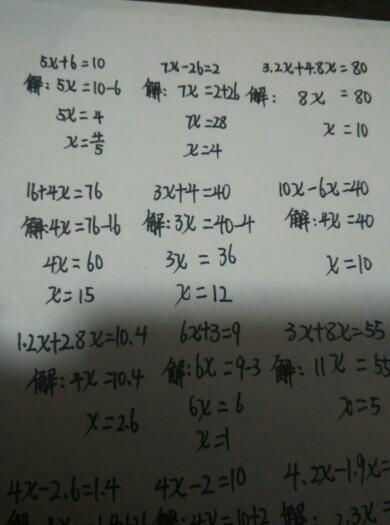 5x+6=10
解: 5x=10-6
5x=4
x=4/5
7x-26=2
解: 7x=2+26
7x=28
x=4
3.2x+4.8x=80
解: 8x=80
x=10
16+4x=76
解:4x=76-16
4x=60
x=15
3x+4=40
解:3x=40-4
3x=36
x=12
10x-6x=40
解:4x=40
x=10
1.2x+2.8x=10.4
解:4x=10.4
x=2.6
6x+3=9
解:6x=9-3
6x=6
x=1
3x+8x=55
解:11x=55
x=5
4x-2.6=1.4
4x-2=10
解:4x=10+2
4.2x-1.9x=